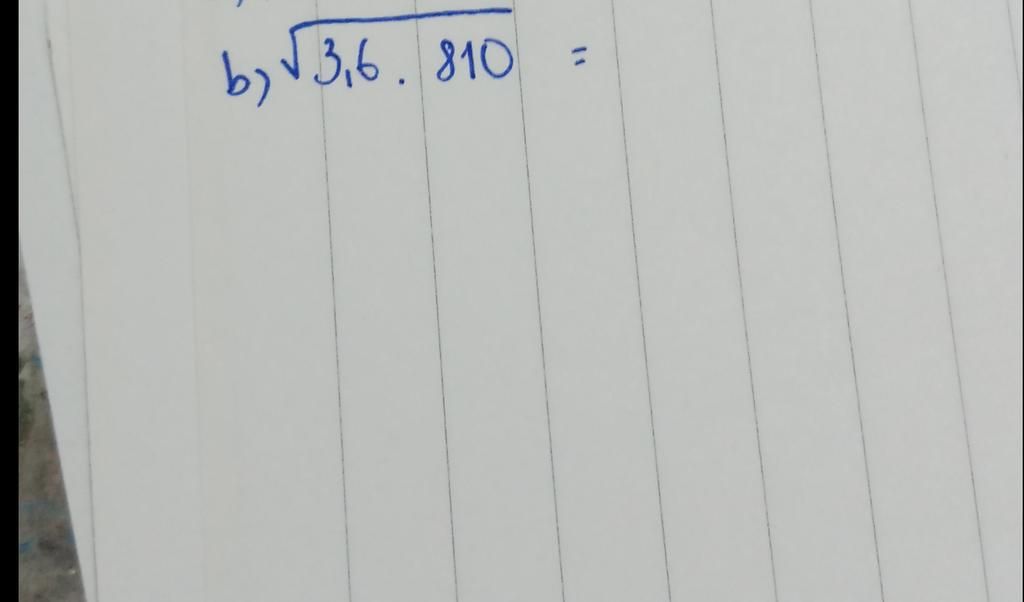 b) √3,6 . 810 =